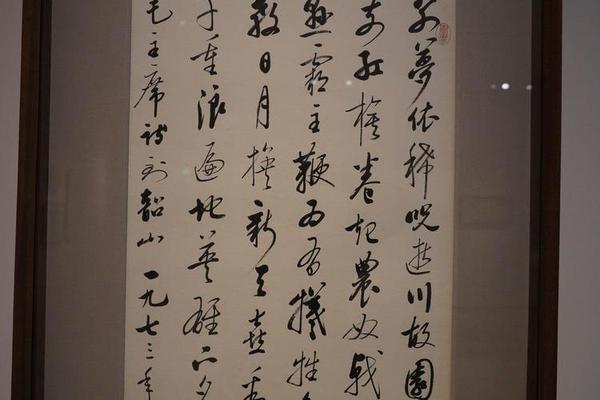 别夢依稀咒逝川故園
前红旗卷起農奴戟
悬霸主鞭为有犧牲多
教日月换新天喜看
千重浪遍地英雄下夕
毛主席诗到韶山 一九七三年